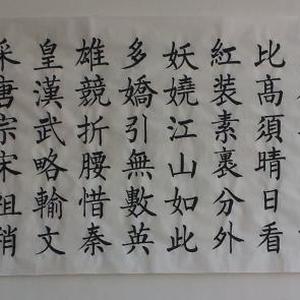 比高須晴日看
紅装素裹分外
妖嬈江山如此
多嬌引無數英
雄競折腰惜秦
皇漢武略輸文
采唐宗宋祖稍